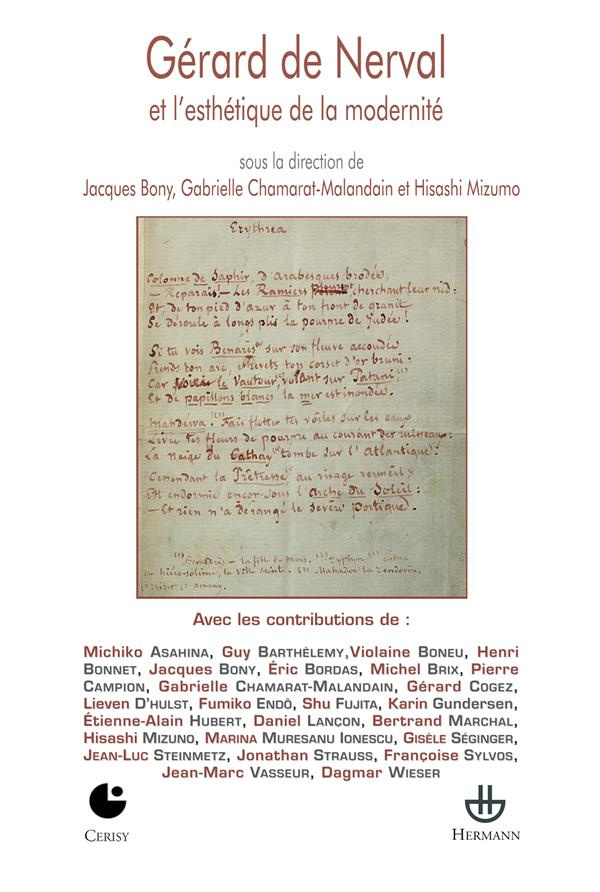 Gérard de Nerval
et l'esthétique de la modernité
sous la direction de
Jacques Bony, Gabrielle Chamarat-Malandain et Hisashi Mizumo
Erythrea
Colonne de Saphir, d'arabesques brodée,
— Reparais! — Les Ramiers cherchant leur nid:
Et, de ton pied d'azur à ton front de granit
Se déroule à longs plis la pourpre de Judée!
Si tu vois Benarès sur son fleuve accoudée
Prends ton arc, et revets ton corset d'or bruni:
Car le Vautour, volant sur Patani,
Et de papillons blancs la mer est inondée.
Mahdéwa! Fais flotter tes voiles sur les eaux
Livre tes fleurs de pourpre au courant des ruisseaux:
La neige du Cathay tombe sur l'Atlantique:
Cependant la Prêtresse au visage vermeil
Est endormie encor sous l'Arche du Soleil:
— Et rien n'a dérangé le sévère portique.
(1) Benarès — la fille de (2) Typhon
la Ville Sainte. (3) Mahadoé la Zendovère
Avec les contributions de :
Michiko ASAHINA, Guy BARTHÈLEMY,Violaine BONEU, Henri
BONNET, Jacques BONY, Éric BORDAS, Michel BRIX, Pierre
CAMPION, Gabrielle CHAMARAT-MALANDAIN, Gérard COGEZ,
Lieven D'HULST, Fumiko ENDÔ, Shu FUJITA, Karin GUNDERSEN,
Étienne-Alain HUBERT, Daniel LANÇON, Bertrand MARCHAL,
Hisashi MIZUNO, MARINA MURESANU IONESCU, GISÈLE SÉGINGER,
JEAN-LUC STEINMETZ, Jonathan STRAUSS, Françoise SYLVOS,
Jean-Marc VASSEUR, Dagmar WIESER
CERISY
HERMANN